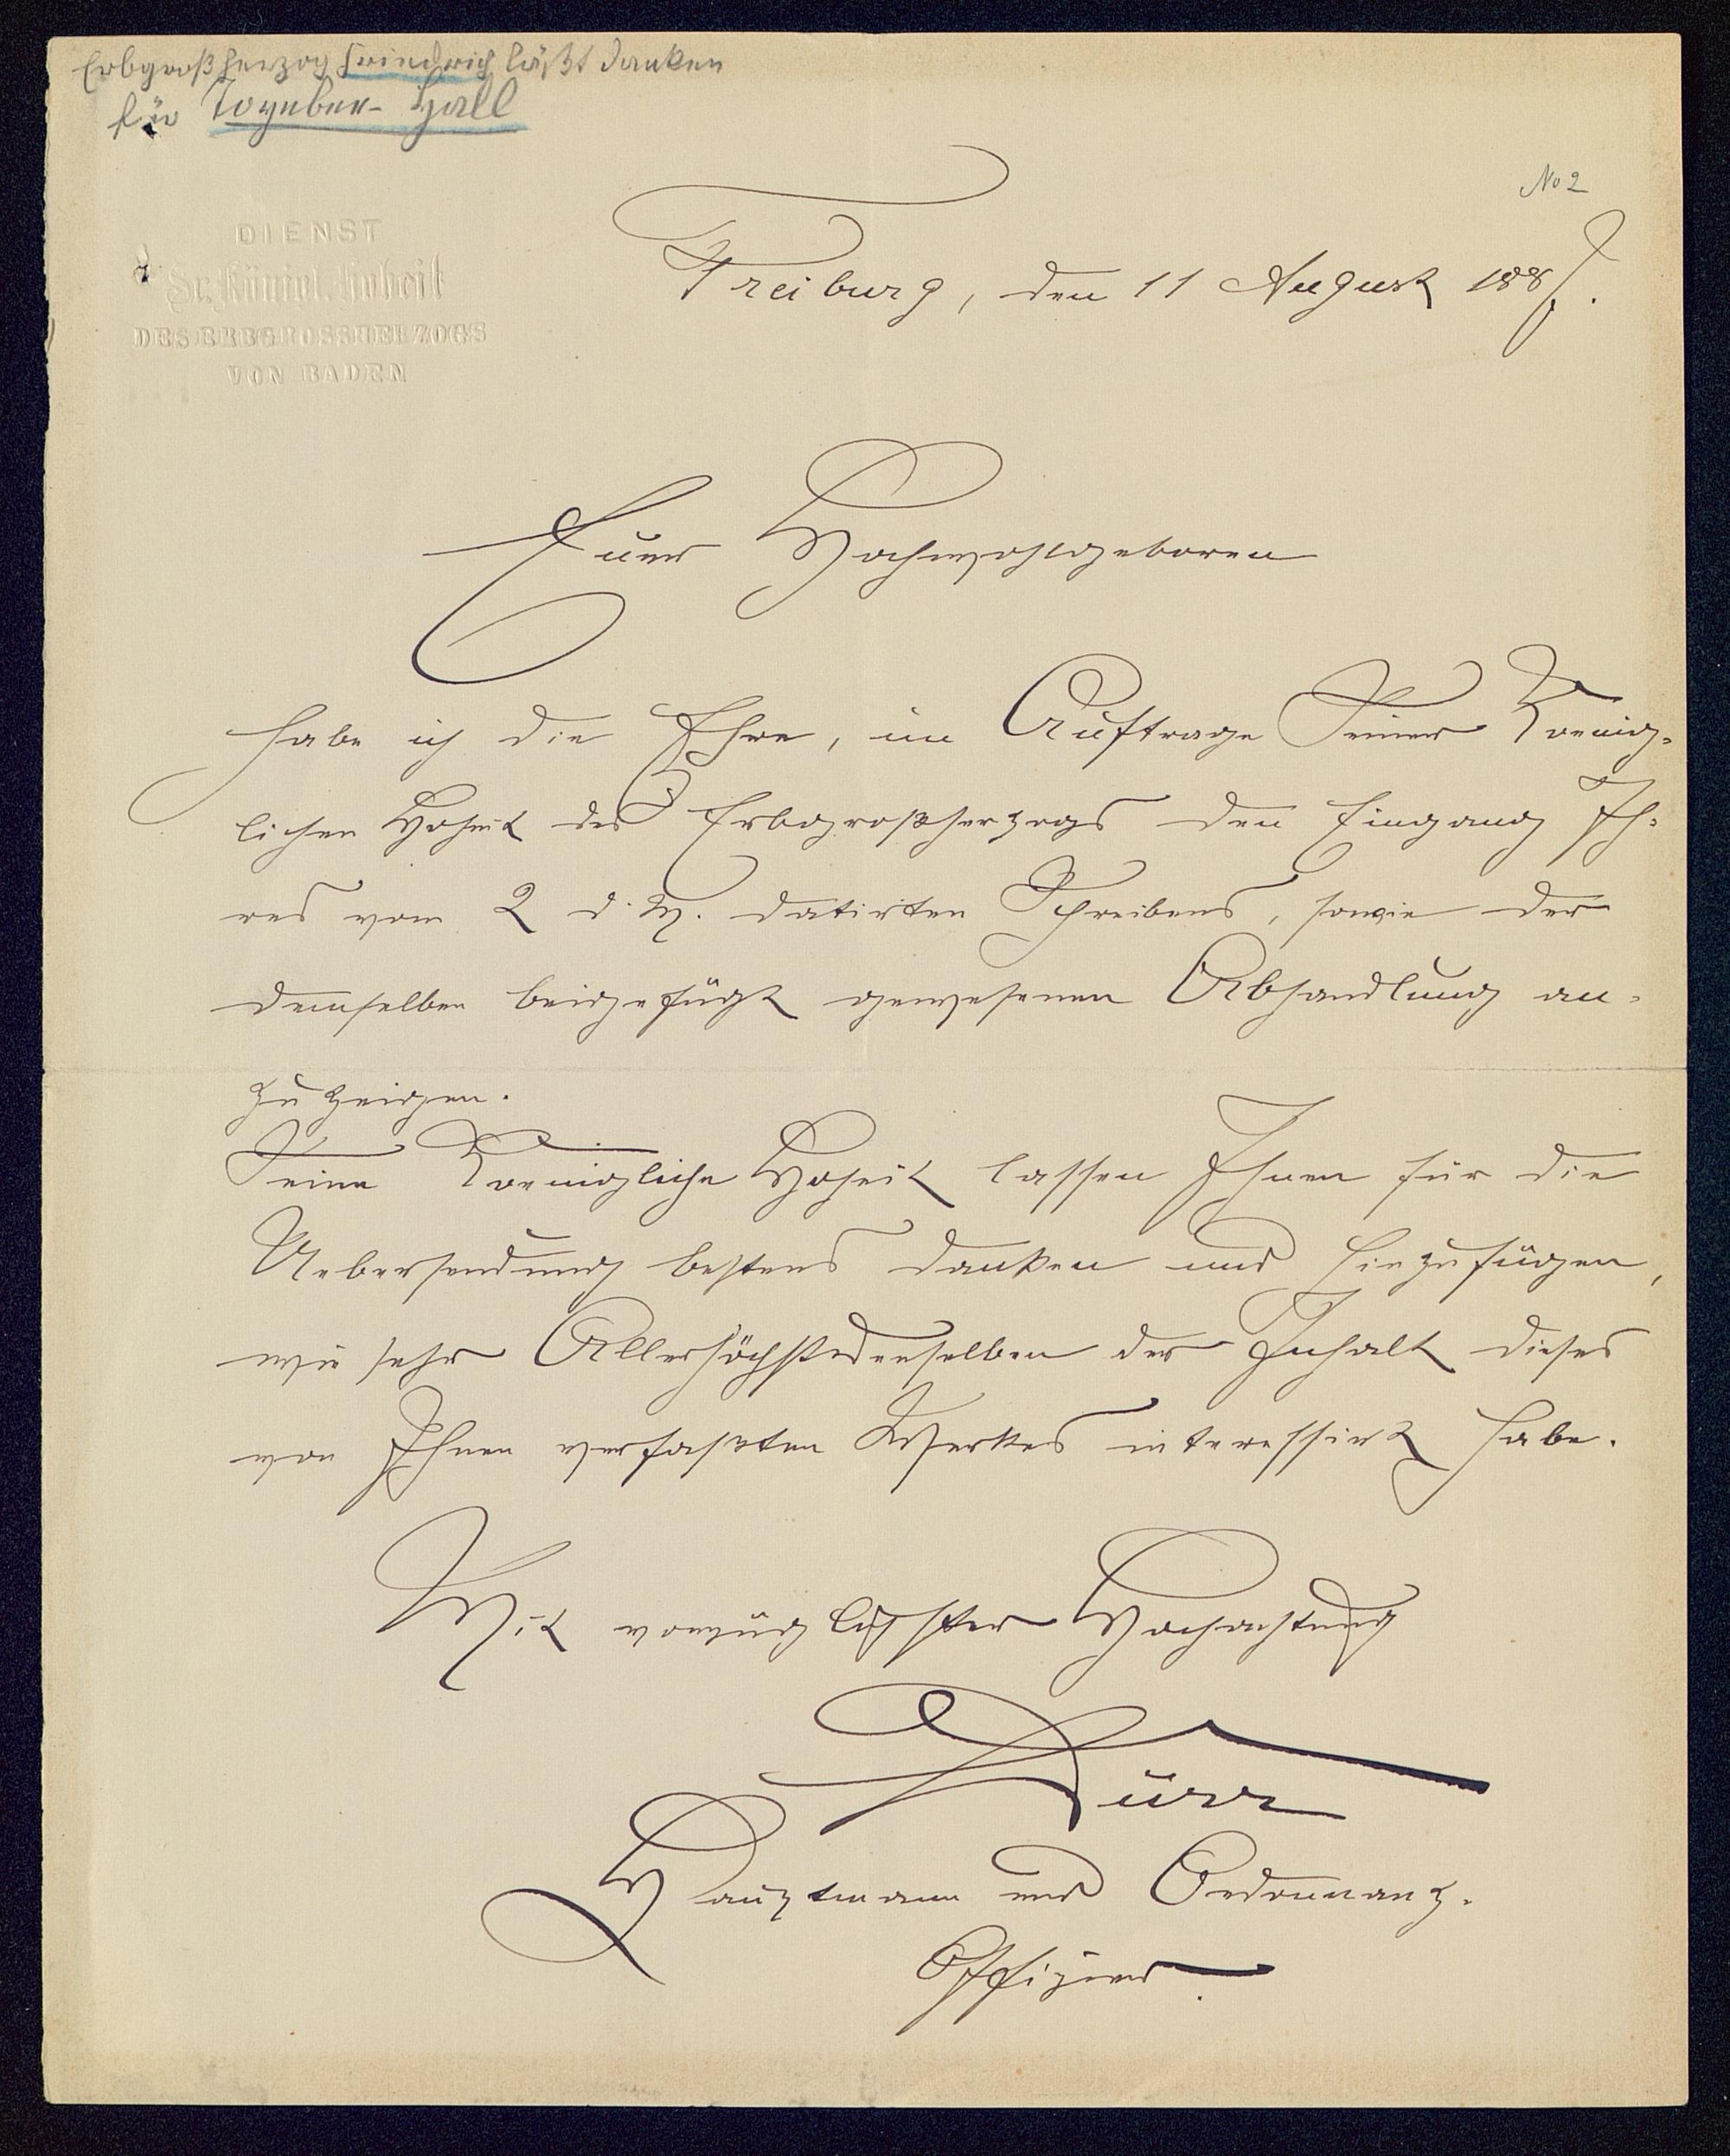 Erbgroßherzog Friedrich läßt danken
für Toynbee-Hall
No 2
DIENST
Sr. Königl. Hoheit
DES ERBGROSSHERZOGS
VON BADEN
Freiburg, den 11 August 188
Euer Hochwohlgeboren
habe ich die Ehre, im Auftrage Seiner Koenig-
lichen Hoheit des Erbgroßherzogs den Eingang Ih-
res vom 2 d. M. datirten Schreibens, sowie der
demselben beigefügt gewesenen Abhandlung an-
zuzeigen.
Seine Koenigliche Hoheit lassen Ihnen für die
Uebersendung bestens danken und hinzufügen,
wie sehr Allerhöchstdenselben der Inhalt dieses
von Ihnen verfaßten Werkes interessirt habe.
Mit vorzüglichster Hochachtung
Dürr
Hauptmann und Ordonnanz-
Offizier.